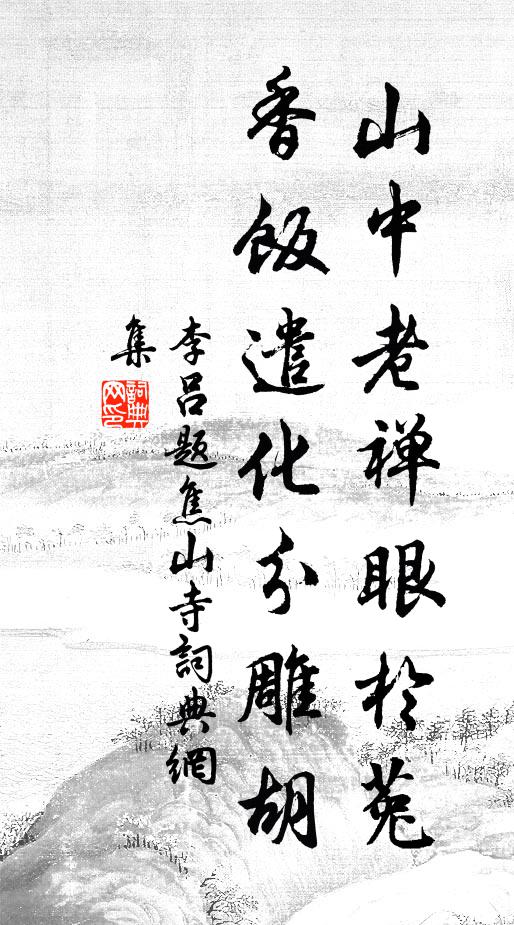 山中老禅眼於菟
香飯遣化分雕胡
李吕题焦山寺詞典網
集
詞典網印